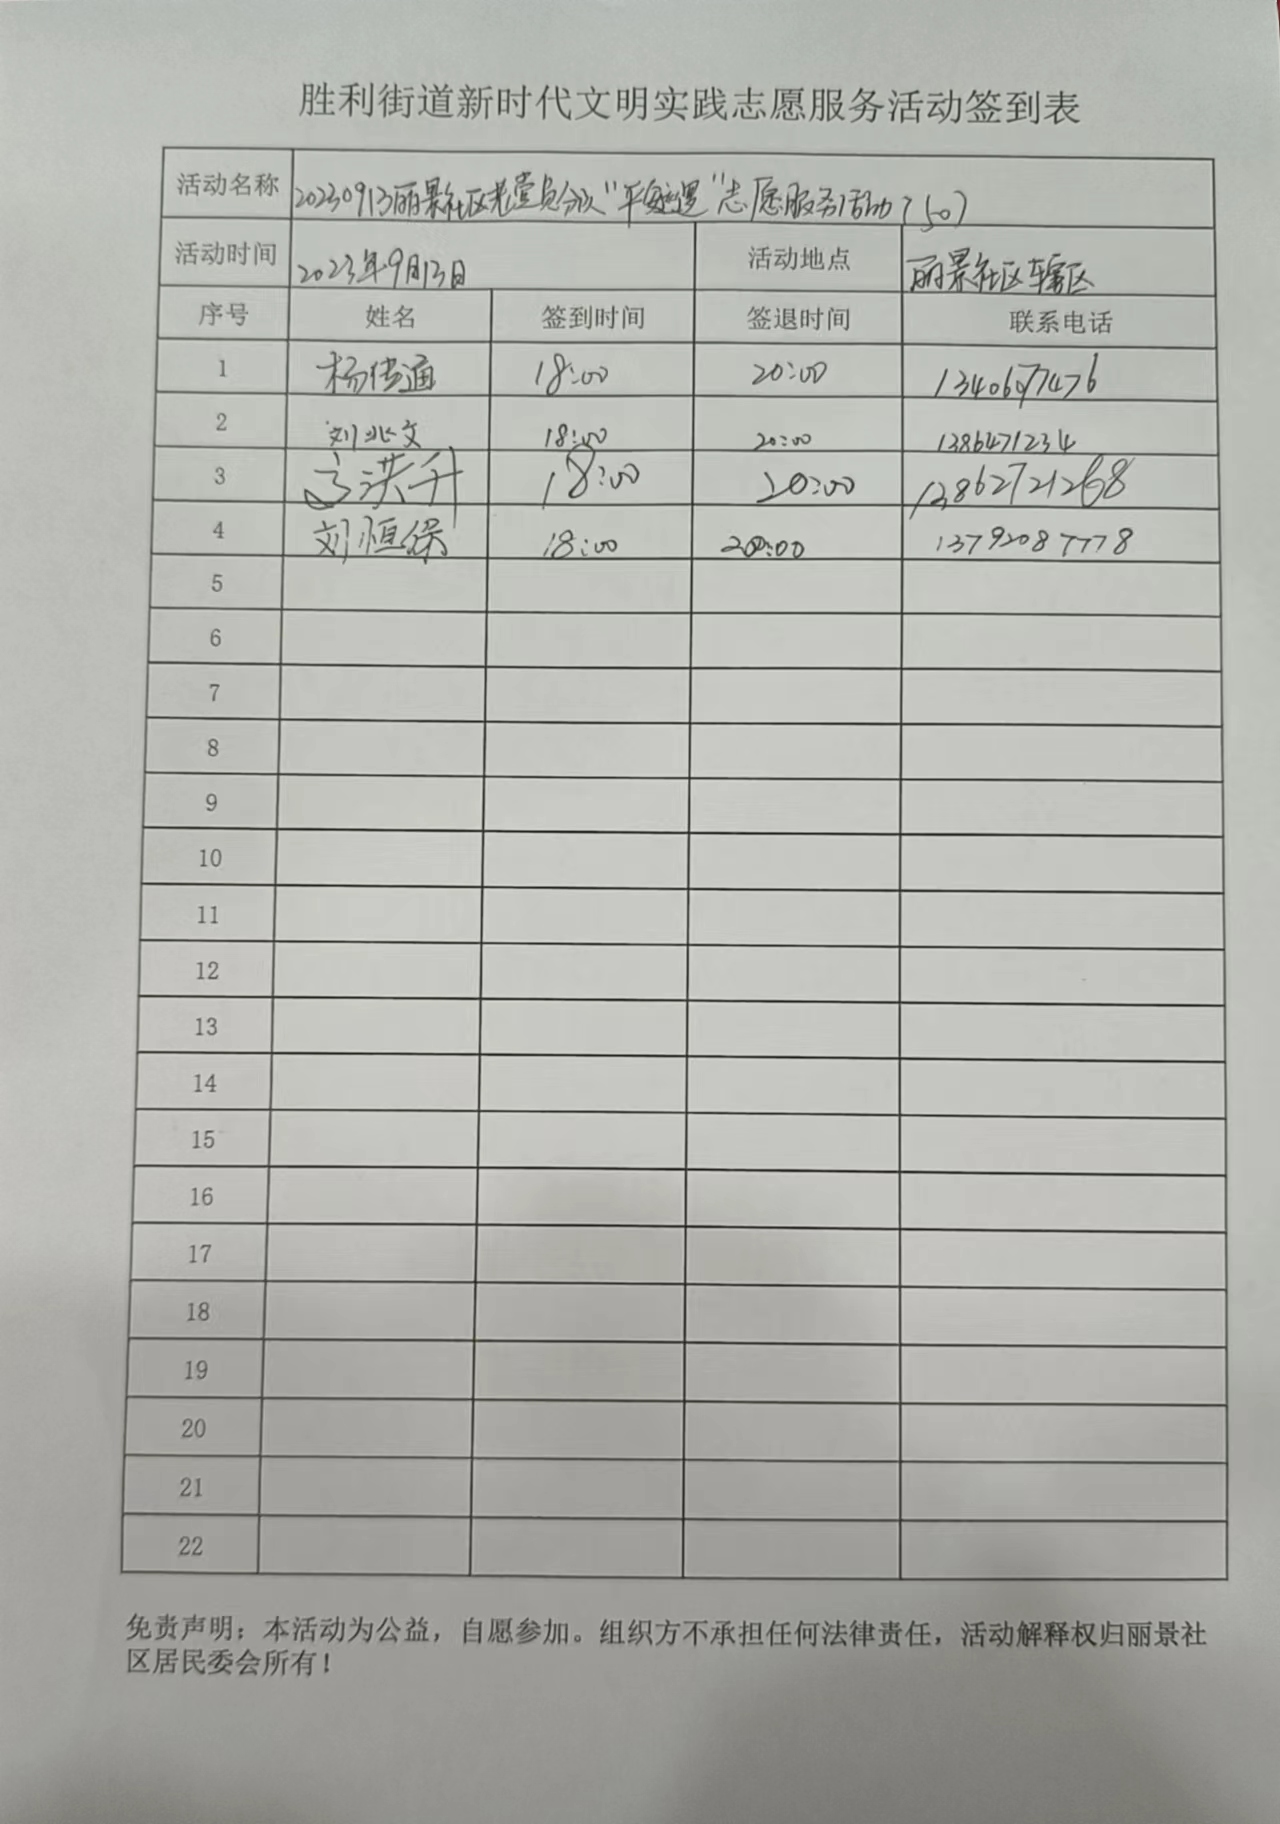 胜利街道新时代文明实践志愿服务活动签到表
活动名称 20230913丽景社区老党员分队"平安巡逻"志愿服务活动(50)
活动时间 2023年9月13日 活动地点 丽景社区辖区
序号 姓名 签到时间 签退时间 联系电话
1 杨传通 18:00 20:00
2 刘兆文 18:00 20:00 1386471234
3 洪升 18:00 20:00 13862721268
4 刘恒保 18:00 20:00 13792087778
5
6
7
8
9
10
11
12
13
14
15
16
17
18
19
20
21
22
免责声明：本活动为公益，自愿参加。组织方不承担任何法律责任，活动解释权归丽景社
区居民委会所有！